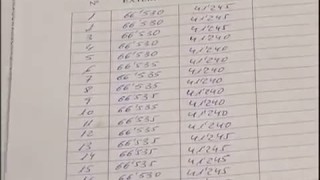 N°
1 66'530 41'245
2 66'530 41'245
3 66'530 41'240
4 66'530 41'240
5 66'530 41'240
6 66'535 41'240
7 66'535 41'240
8 66'535 41'240
9 66'535 41'240
10 66'535 41'240
11 66'535 41'240
12 66'535 41'240
13 66'535 41'245
14 66'535 41'245
15 66'535 41'245
66'530 41'240